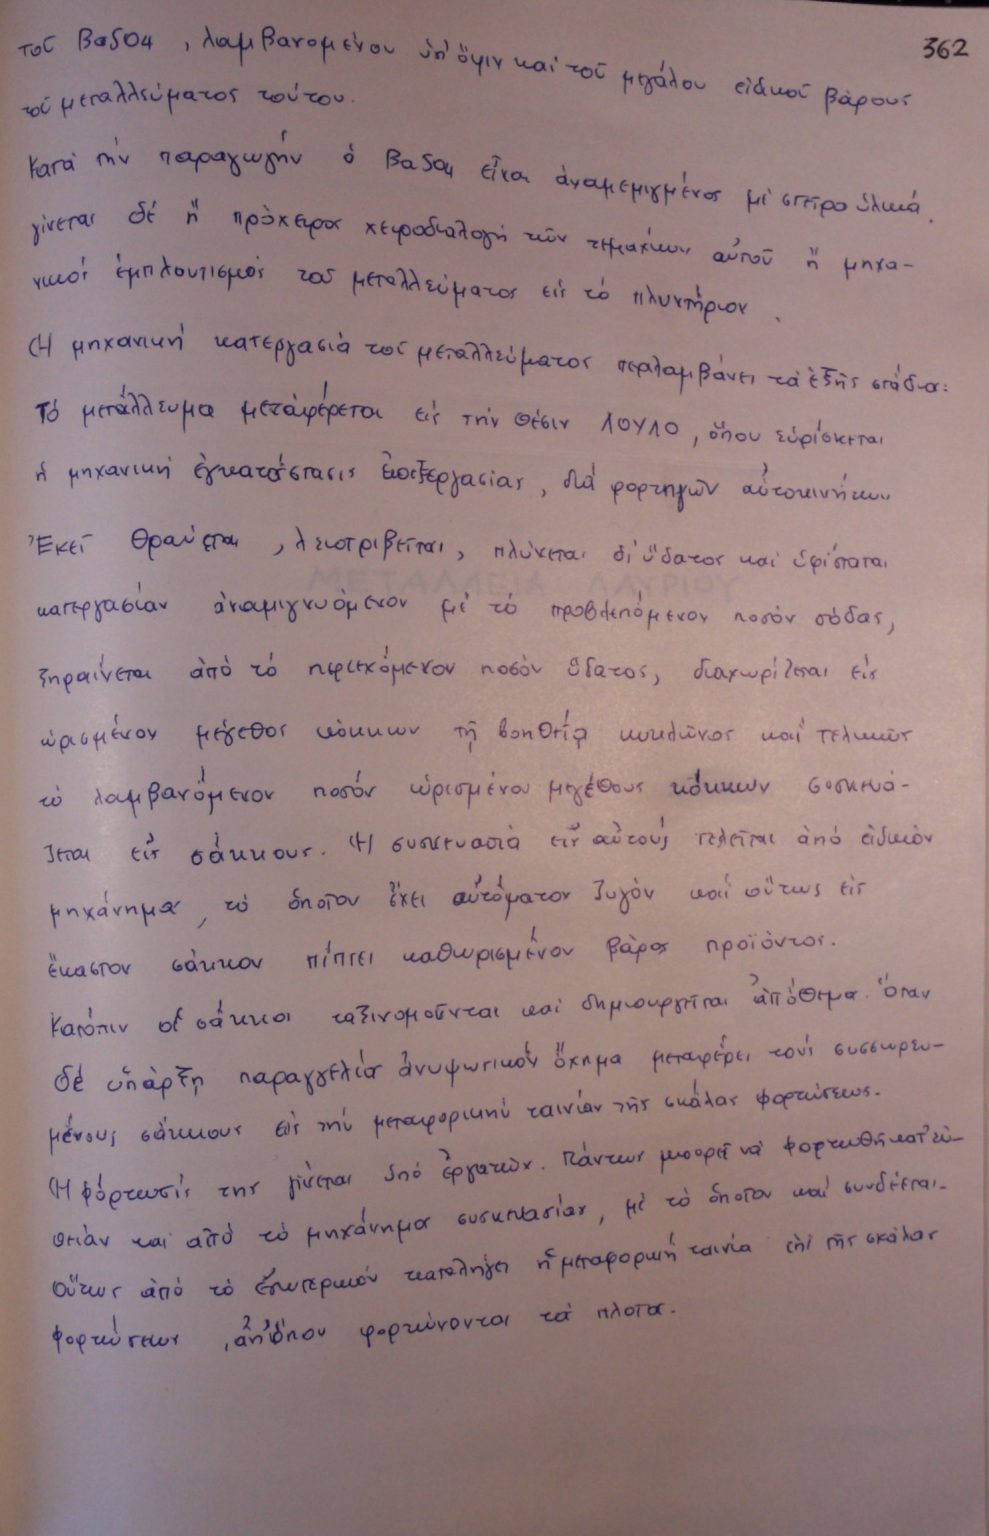 362
τοῦ BaSO4, λαμβανομένου ὑπ' ὄψιν καί τοῦ μεγάλου εἰδικοῦ βάρους
τοῦ μεταλλεύματος τούτου.
Κατά τήν παραγωγήν ὁ BaSO4 εἶναι ἀναμεμιγμένος μέ στεῖρα ὑλικά.
γίνεται δέ ἤ πρόχειρος χειροδιαλογή τῶν τεμαχίων αὐτοῦ ἤ μηχα-
νικός ἐμπλουτισμός τοῦ μεταλλεύματος εἰς τό πλυντήριον.
Ἡ μηχανική κατεργασία τοῦ μεταλλεύματος περιλαμβάνει τά ἑξῆς στάδια:
Τό μετάλλευμα μεταφέρεται εἰς τήν θέσιν ΛΟΥΛΟ, ὅπου εὑρίσκεται
ἡ μηχανική ἐγκατάστασις ἐπεξεργασίας, διά φορτηγῶν αὐτοκινήτων
Ἐκεῖ θραύεται, λειοτριβεῖται, πλύνεται δι' ὕδατος καί ὑφίσταται
κατεργασίαν ἀναμιγνυόμενον μέ τό προβλεπόμενον ποσόν σόδας,
ξηραίνεται ἀπό τό περιεχόμενον ποσόν ὕδατος, διαχωρίζεται εἰς
ὡρισμένον μέγεθος κόκκων τῇ βοηθείᾳ κυκλῶνος καί τελικῶς
τό λαμβανόμενον ποσόν ὡρισμένου μεγέθους κόκκων συσκευά-
ζεται εἰς σάκκους. Ἡ συσκευασία εἰς αὐτούς τελεῖται ἀπό εἰδικόν
μηχάνημα, τό ὁποῖον ἔχει αὐτόματον ζυγόν καί οὕτως εἰς
ἕκαστον σάκκον πίπτει καθωρισμένον βάρος προϊόντος.
Κατόπιν οἱ σάκκοι ταξινομοῦνται καί δημιουργεῖται ἀπόθεμα. Ὅταν
δέ ὑπάρξῃ παραγγελία ἀνυψωτικόν ὄχημα μεταφέρει τούς συσσωρευ-
μένους σάκκους εἰς τήν μεταφορικήν ταινίαν τῆς σκάλας φορτώσεως.
Ἡ φόρτωσίς της γίνεται ὑπό ἐργατῶν. Πάντως μπορεῖ νά φορτωθῆ κατ' εὐ-
θεῖαν καί ἀπό τό μηχάνημα συσκευασίας, μέ τό ὁποῖον καί συνδέεται.
Οὕτως ἀπό τό ἐσωτερικόν καταλήγει ἡ μεταφορική ταινία ἐπί τῆς σκάλας
φορτώσεως, ἀπ' ὅπου φορτώνονται τά πλοῖα.